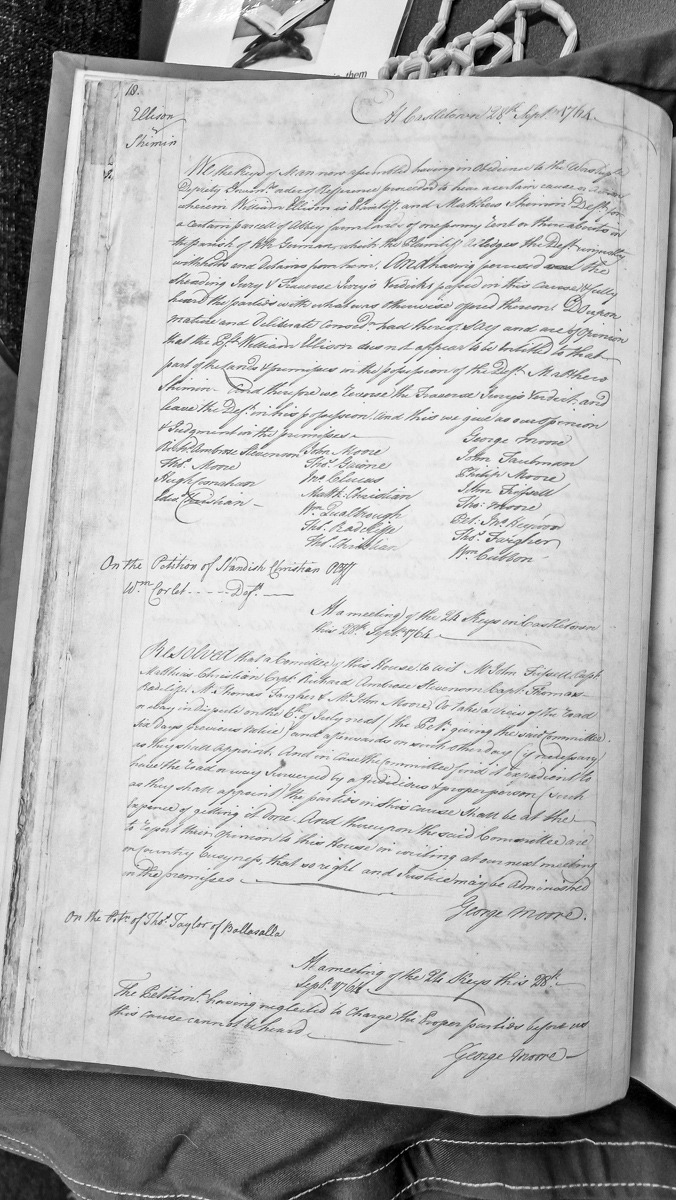 them
18.
At Castletown 28th Septr 1764.
Ellison
v
Shimin
We the Keys of Man now assembled having in Obedience to the Worshipful
Deputy Governrs order of Refference proceeded to hear a certain cause
wherein William Ellison is Plaintiff and Matthew Shimin Deft for
a certain parcell of Abbey farm lands of one penny Rent or thereabouts in
the parish of Kk German, which the Plaintiff alledges the Deft unjustly
withholds and detains from him. And having perused the
Sheading Jury & Traverse Jury's Verdicts passed in this Cause & fully
heard the parties with what was otherwise offered thereon. Do upon
mature and Deliberate Considn had thereof, Say and are of Opinion
that the Plf William Ellison does not appear to be Entitled to that
part of the lands & premisses in the possession of the Deft Matthew
Shimin. And therefore we Reverse the Traverse Jury's Verdict and
leave the Deft in his possession. And this we give as our Opinion
& Judgment in the premisses
George Moore
Richd Ambrose Stevenson John Moore
John Taubman
Thos Moore Thos Gawne
Philip Moore
Hugh Cosnahan Jno Clucas
John Frissell
Edwd Christian Matth: Christian
Thos Moore
Wm Qualtrough
Pet. Jno Heywood
Thos Radcliffe
Thos Fargher
Thos Christian
Wm Cubbon
On the Petition of Standish Christian Plff
Wm Corlet - - - - - Deft
At a meeting of the 24 Keys in Castletown
this 28th Septr 1764
Resolved that a Comittee of this House to wit Mr John Frissell Capt
Matthias Christian Capt Richard Ambrose Stevenson Capt Thomas
Radcliffe Mr Thomas Fargher & Mr John Moore, do take a view of the Road
or Way in dispute on the 6th of July next (the Petr giving the said Committee
Six days previous Notice) and afterwards on such other day (if necessary)
as they shall appoint. And in Case the Committee find it expedient to
have the Road or way Surveyed by a Judicious & proper person (such
as they shall appoint) the parties in this Cause shall be at the
Expence of getting it Done. And thereupon the said Committee are
to report their Opinion to this House in writing at our next meeting
on Country Business, that so right and Justice may be Administred
in the premisses
George Moore.
On the Petn of Thos Taylor of Ballasalla
At a meeting of the 24 Keys this 28th
Septr 1764
The Petitionr having neglected to Charge the Proper parties before us
this cause cannot be heard
George Moore